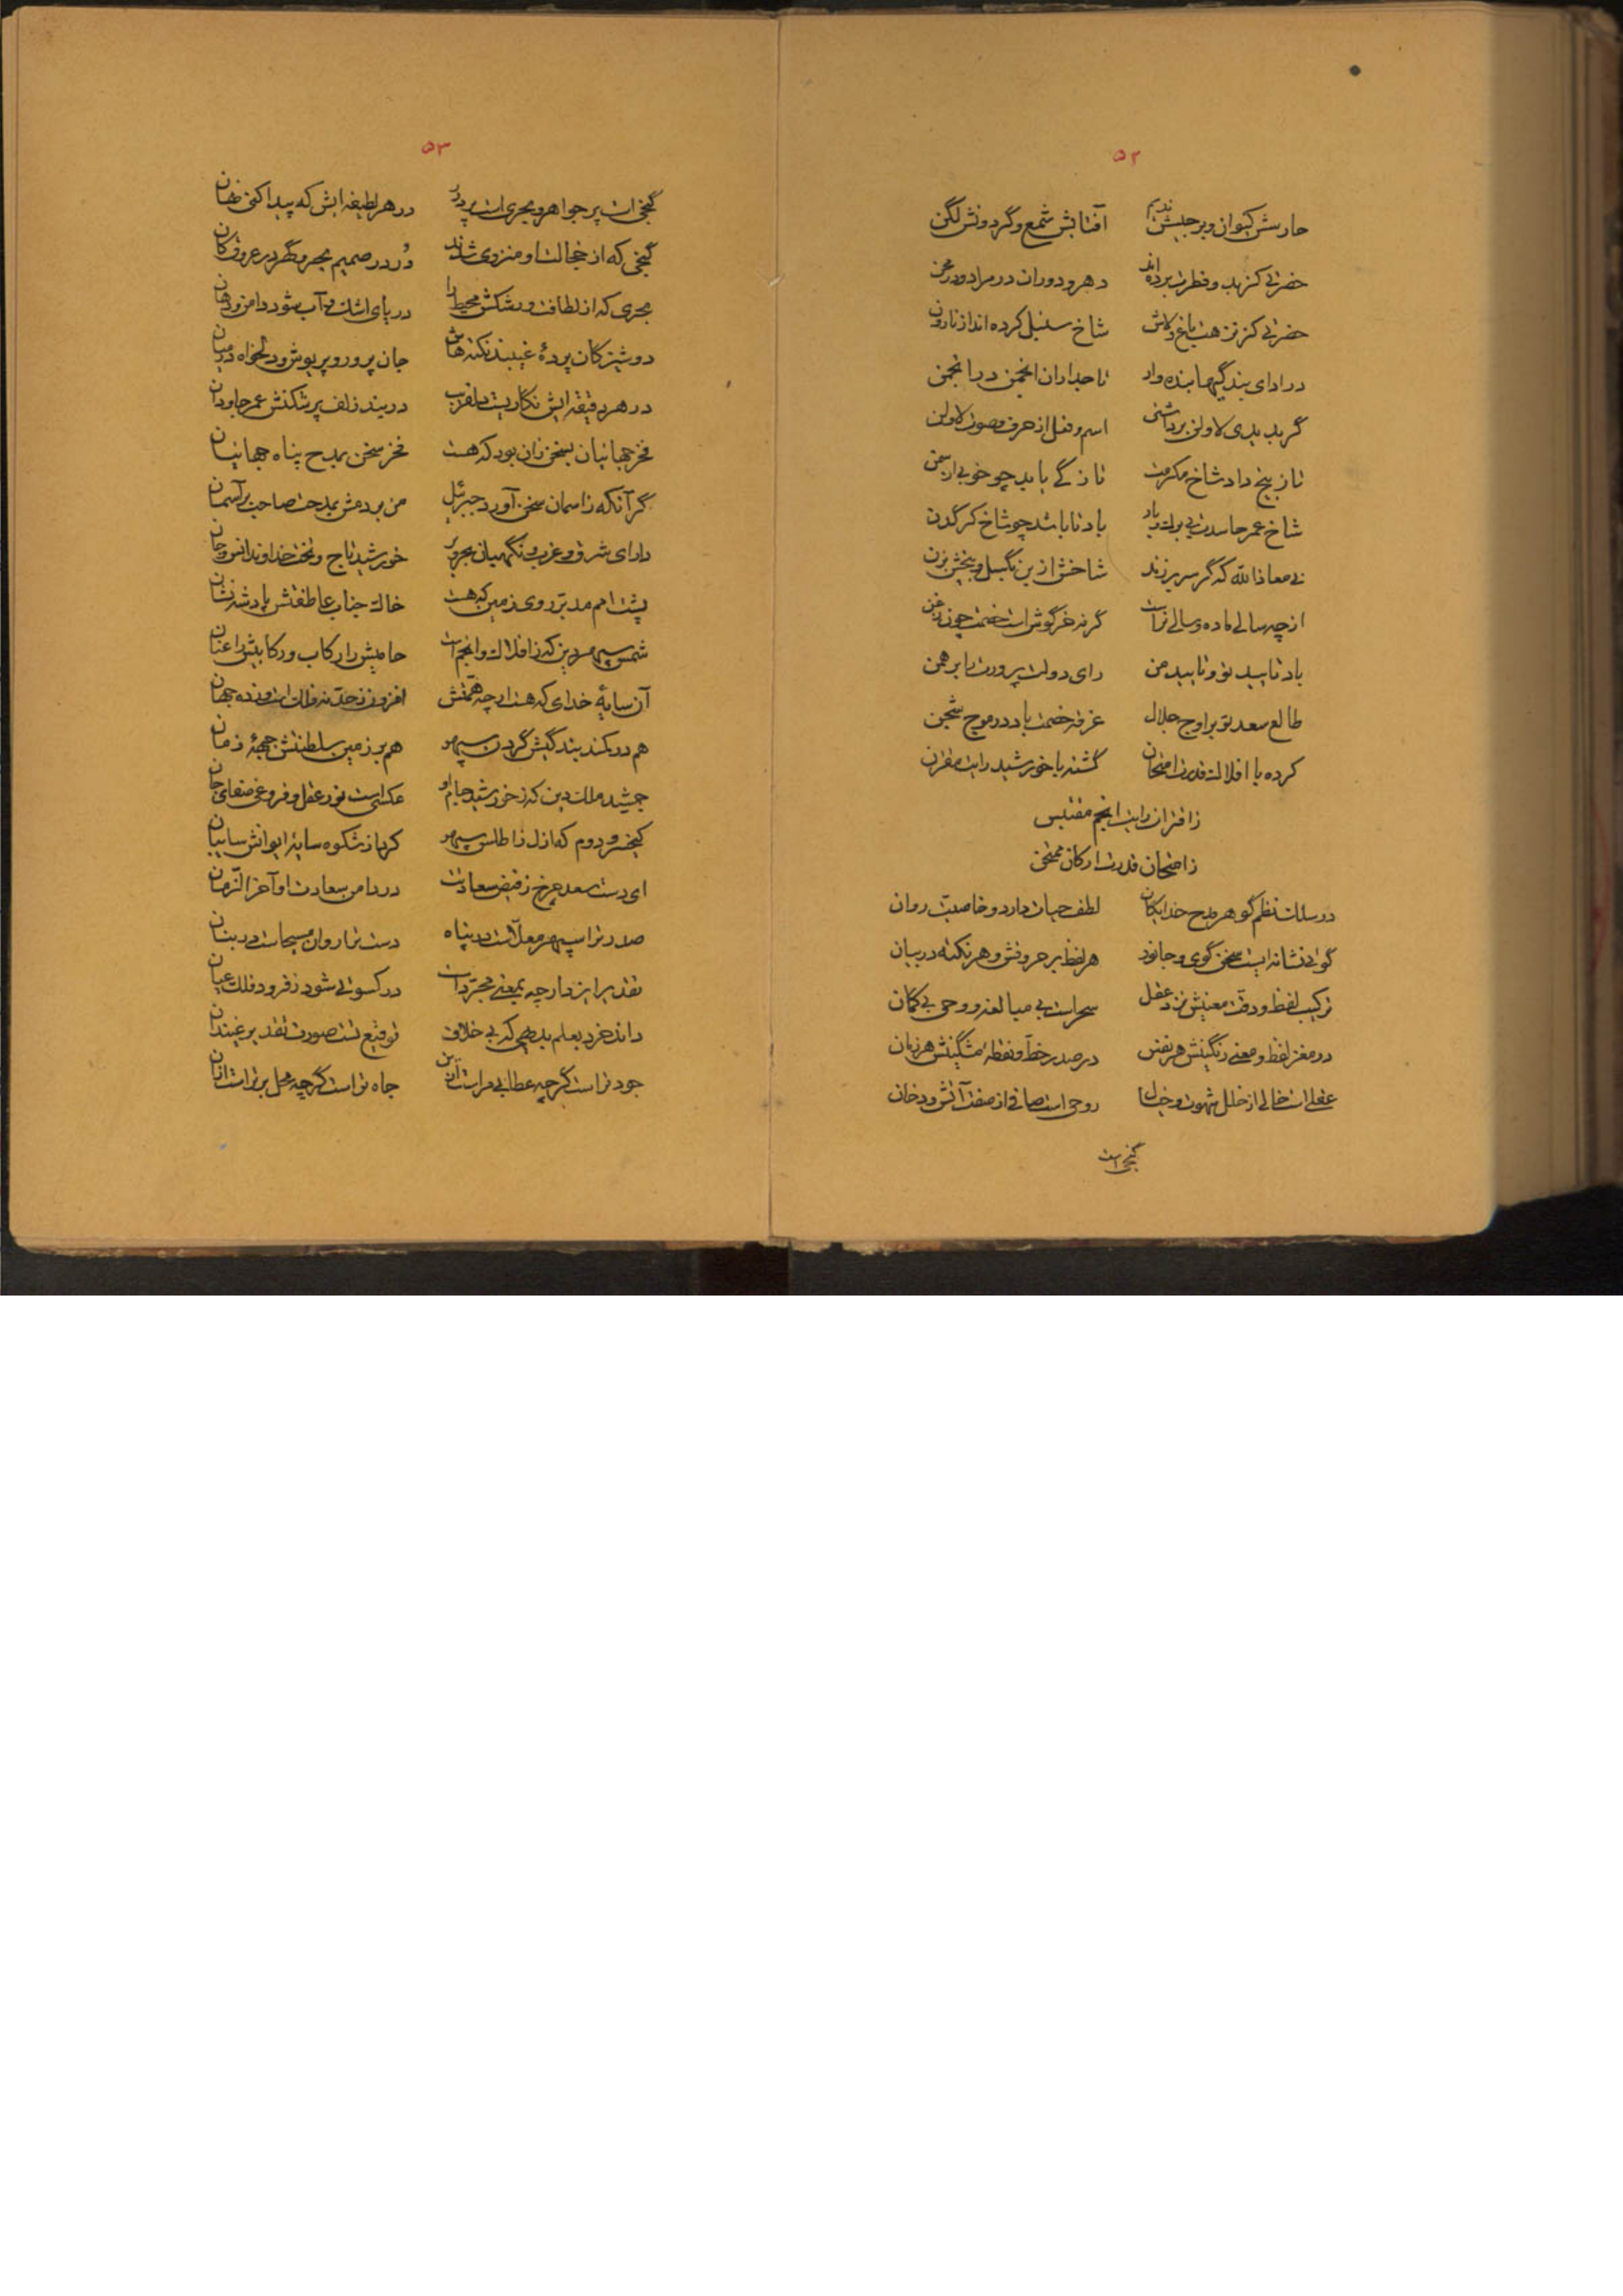 ۵۲
حارسش کیوان و برجیسش ندیم آفتابش شمع و گردونش لگن
حضرتی کز بهر و فطرت برده‌اند دهر و دوران در مراد و در محن
حضرتی کز نزهت باغ دلش شاخ سنبل کرده‌اند از نارون
در ادای بندگیها بنده‌وار تاجداران انجمن در انجمن
گر بدبدی لا ولن برداشتی اسم و فعل از حرف و صوت لا ولن
تا ز بیخ داد شاخ مکرمت تازگی یابد چو خوی از سمن
شاخ عمر حاسدت بی برگ و باد باد تا باشد چو شاخ کرگدن
نی معاذالله که گر سر برزند شاخش از بن بگسل و بیخش بزن
از چه سالی ماده و سالی نر است گر نه خرگوش است خصمت چون زغن
باد تایید تو و تایید من رای دولت پرورت را برهمن
طالع سعد تو بر اوج جلال غرقه خصمت باد در موج شجن
کرده با افلاک قدرت امتحان گشته با خورشید رایت مقترن
ز اقتران رایت انجم مقتبس
ز امتحان قدرت ارکان ممتحن
در سلک نظم گوهر مدح خدایگان لطف حیات دارد و خاصیت روان
گویی نشانه ایست سخن گوی و جانور هر لفظ بر حروفش و هر نکته در بیان
ترکیب لفظ و دقت معنیش نزد عقل سحر است بی مبالغه و وحی بی گمان
در مغز لفظ و معنی رنگینش هر نفس در صدر خط و نقطه مشگینش هر زمان
عقلی است خالی از خلل شهوت و خیال روحی است صافی از صفت آتش و دخان
گنجی است
۵۳
گنجی است پر جواهر و بحری است پر درر در هر لطیفه ایش که پیدا کنی نهان
گنجی که از خجالت او منزوی شدند در در صمیم بحر و گهر در عروق کان
بحری که از لطافت و رشکش محیط را دریای اشک آب شود دامن و دهان
دوشیزگان پردهٔ غیبند نکته‌هاش جان پرور و پریوش و دلخواه در میان
در هر دقیقه ایش نگاریست دلفریب در بند زلف پر شکنش عمر جاودان
فخر جهانیان بسخن زان بود که هست فخر سخن بمدح پناه جهانیان
گر آنکه ز آسمان سخن آورد جبرئیل من بردمش بمدحت صاحب بر آسمان
دارای شرق و غرب و نگهبان بحر و بر خورشید تاج و تخت خداوند انس و جان
پشت امم مدبر روی زمین که هست خاک جناب عاطفتش پادشه نشان
شمس سپهر دین که ز افلاک و انجم است حامیش را رکاب و رکابیش را عنان
آن سایهٔ خدای که هست ار چه همتش افزون ز حد نه فلک است و ده جهان
هم در کمند بندگیش گردن سپهر هم بر زمین سلطنتش جبههٔ زمان
جمشید ملک دین که ز خورشید جام او عکسی است نور عقل و فروغی صفای جان
کیخسرو دوم که ازل ز اطلس سپهر کرد از شکوه سایهٔ ایوانش سایبان
ای دست سعد چرخ ز فیض سعادتت در دامن سعادت او آخر الزمان
صدر ترا سپهر معلاست در پناه دست ترا روان مسیحاست در بنان
تقدیر ایزد ار چه بمعنی مجرد است در کسوتی شود ز فرود فلک عیان
داند خرد بعلم بدیهی که بی خلاف توقیع تست صورت تقدیر غیبدان
جود تراست گر چه عطایی مراست این جاه تراست گر چه محل برتر است از آن